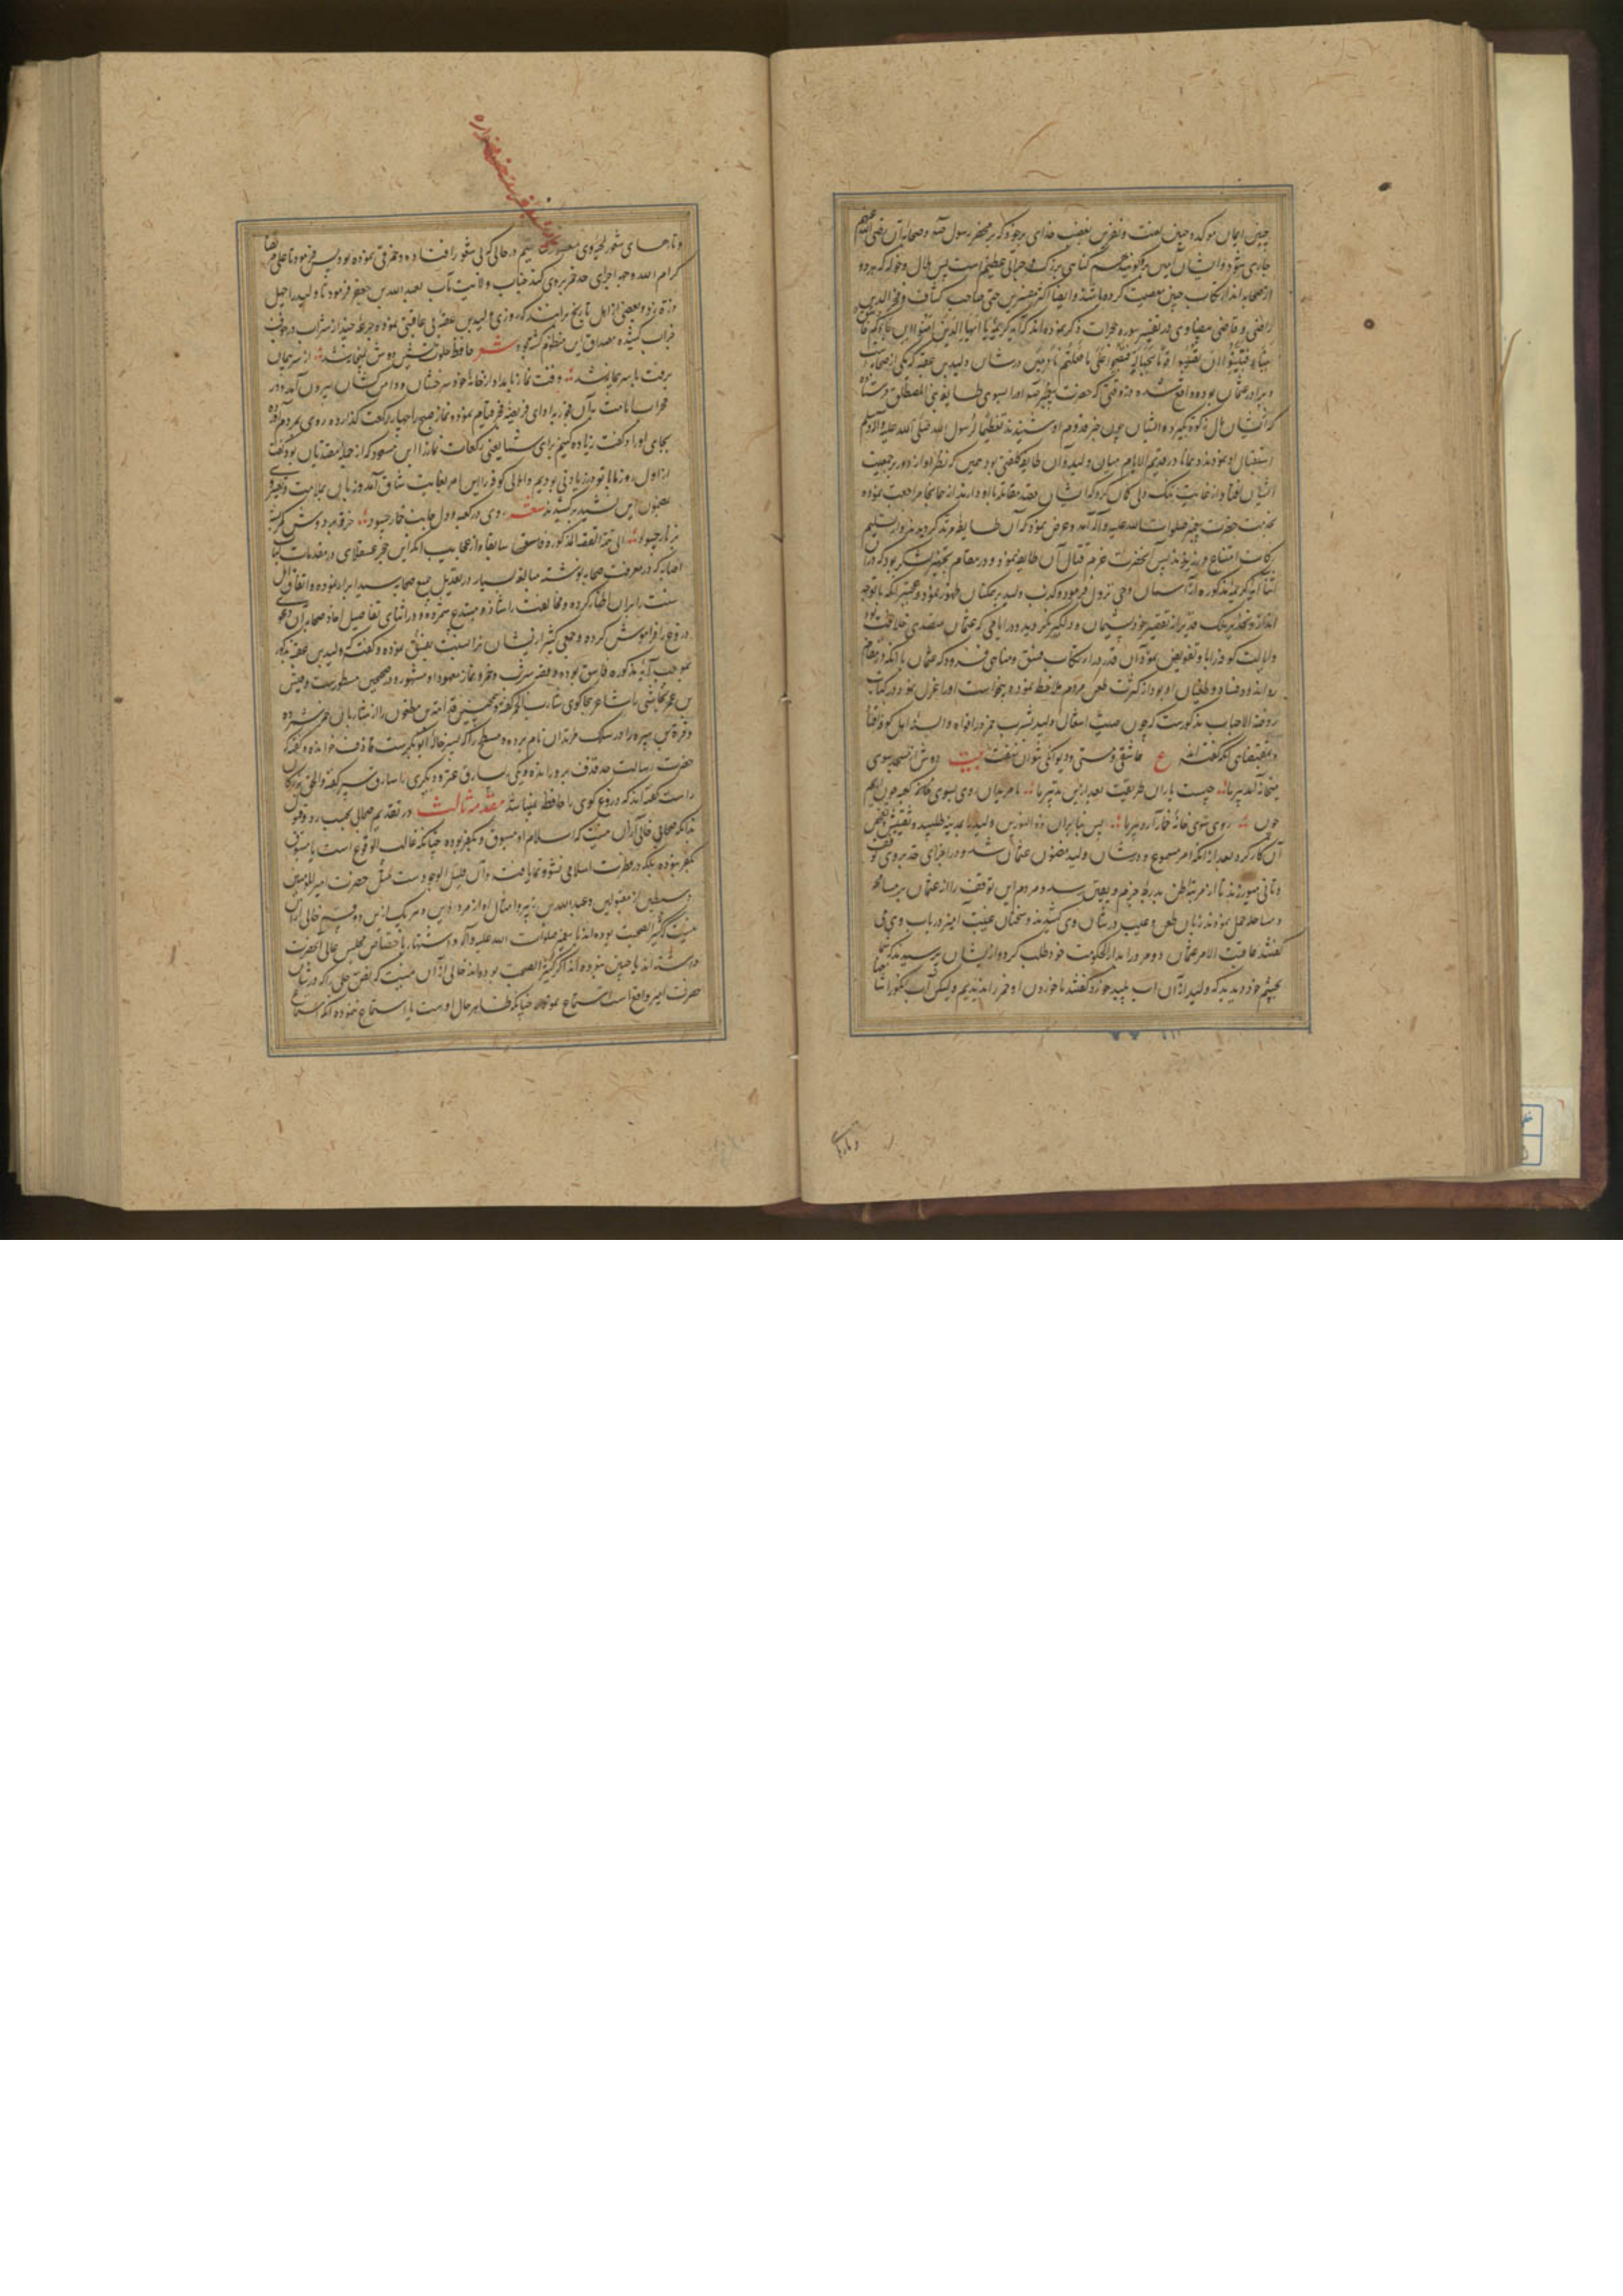 چنین ایمان موکده و چنین لعنت و نفرین بغضب خدای بر خود که بمحضر رسول صلعم و صحابه آن رضی الله عنهم
جاری شود و ایشان آیس و گویند هم گناهی بزرگ و جرمی عظیم است پس هلال و خوله که هر دو
از صحابه اند ارتکاب چنین معصیت کرده باشند و ایضا اکثر مفسرین حتی صاحب کشاف و فخر الدین
رازی و قاضی بیضاوی در تفسیر سوره حجرات ذکر نموده اند که آیه کریمه یا ایها الذین امنوا ان جاءکم فاسق
بنباء فتبینوا ان تصیبوا قوما بجهالة فتصبحوا علی ما فعلتم نادمین در شان ولید بن عقبه که یکی از صحابه
و برادر عثمان بوده واقع شده در وقتی که حضرت پیغمبر صلعم او را بسوی طایفه بنی المصطلق فرستاده
که از ایشان مال زکوة بگیرد و ایشان چون خبر قدوم او شنیدند تعظیما لرسول الله صلی الله علیه و آله وسلم
استقبال او نمودند و همانا در قدیم الایام میان ولید و آن طایفه کلفتی بود همین که نظر او از دور بر جمعیت
ایشان افتاد از غایت تنگ دلی گمان کرد که ایشان قصد مقاتله با او دارند از همانجا مراجعت نموده
بخدمت حضرت پیغمبر صلوات الله علیه و آله آمد و عرض نمود که آن طایفه مرتد گردیدند و از تسلیم
زکات امتناع ورزیدند پس آنحضرت عزم قتال آن طایفه نمود و در مقام تجهیز لشکر بود که در آن
اثنا آیه کریمه مذکوره از آسمان وحی نزول فرمود و کذب ولید بر همکنان ظهور نمود و عجبتر آنکه با توجه
انذار و تحذیر ملک قدیر از تقصیر خود پشیمان و دلگیر نگردید و در ایامی که عثمان متصدی خلافت بود
و ایالت کوفه را باو تفویض نمود آن قدر در ارتکاب فسق و مناهی فزود که عثمان با آنکه در مقام
روایت و فساد و طغیان او بود از کثرت طعن مردم ملاحظه نموده میخواست او را عزل نمود در کتاب
روضة الاحباب مذکورست که چون صیت اشتغال ولید بشرب خمر در افواه و السنه اهل کوفه افتاد
و بمقتضای آنکه گفته اند ع عاشقی و مستی و دیوانگی نتوان نهفت بیت دوش از مسجد سوی
میخانه آمد پیر ما ؞ چیست یاران طریقت بعد ازین تدبیر ما ؞ ما مریدان روی بسوی کعبه چون آریم
چون ؞ روی سوی خانه خمار آرد پیر ما ؞ پس بنابران ذو النورین ولید را بمدینه طلبید و تفتیش و تفحص
آن کار کرد بعد از آنکه امر مسموع در شان ولید مضنون عثمان شد و در اجرای حد بر وی توقف
و تانی میورزید تا از مرتبه ظن بدرجه جزم و یقین رسد و مردم این توقف را از عثمان بر مساهله
و مساهله حمل نمودند زبان طعن و عیب در شان وی کشیدند و سخنان غیبت آمیز در باب وی می
گفتند عاقبت الامر عثمان دو مرد را بدار الحکومت خود طلب کرد و از ایشان پرسید که شما
بچشم خود دیدید که ولید از آن آب پلید خورد گفتند ما خوردن او خمر را ندیدیم ولیکن آب انگور را
و تارهای
و تارهای شعور لحیه وی میچکید در حالی که بی شعور افتاده بود و خمر قی نموده بود پس فرمود تا علی مرتضی
کرم الله وجهه اجرای حد خمر بر وی کند جناب ولایت مآب بعبد الله بن جعفر فرمود تا ولید را چهل
دره زد و بعضی از اهل تاریخ برانند که روزی ولید بن عقبه بی عاقبتی نموده جرعه چند از شراب در جوف
خراب کشیده و مصداق این منظوم گشته شعر حافظ خلوت نشین دوش بمیخانه شد ؞ از سر پیمان
برفت با سر پیمانه شد ؞ وقت نماز بامداد از خانه خود سرخوشان و دامن کشان بیرون آمد و در
محراب امامت بآن فجور بادای فریضه فجر قیام نموده نماز صبح را چهار رکعت گذارده روی بمردم آورده
بجای اوراد گفت زیاده کنیم برای شما یعنی رکعات نماز را ابن مسعود که از جمله مقتدیان بود گفت
از اول روز ما با تو در زیادتی بودیم و اهالی کوفه را این امر بغایت شاق آمد و زبان بملامت و تعییر وی
بمضمون این نشید برکشیدند شعر روی در کعبه و دل جانب خمار چسود ؞ خرقه بر دوش و کمر بسته
بزنار چسود ؞ الی تتمة القصة المذکورة فاسمعها سابقا و از عجایب آنکه ابن حجر عسقلانی در مقدمات کتاب
اصابه که در معرفت صحابه نوشته مبالغه بسیار در تعدیل جمیع صحابه سید ابرار نموده و اتفاق اهل
سنت را بران اظهار کرده و مخالفت را شاذ و مبتدع شمرده و در اثنای تفاصیل احاد صحابه آن دعوی
دروغ را فراموش کرده و جمعی کثیر از ایشان را نسبت بفسق نموده و گفته که ولید بن عقبه مذکور
بموجب آیه مذکوره فاسق بوده و قصه شرب خمر و نماز معهود او مشهور و در صحیحین مسطورست و قیس
بن عمر نجاشی را شاعر هجاگوی شارب الخمر گفته و همچنین قدامة بن مظعون را از شاربان خمر شمرده
و قره بن هبیره را در سلک مرتدان نام برده و مسطح را که پسر خاله ابوبکرست قاذف خوانده و گفته که
حضرت رسالت حد قذف برو رانده و یکی را سارق عنزه و دیگری را سارق سیر گفته والحق بزرگان
راست گفته اند که دروغ گوی را حافظه نمیباشد مقدمه ثالث در تقدیم صحابی بحسب رد و قبول
بدانکه صحابی خالی از آن نیست که اسلام او مسبوق بکفر بوده چنانکه غالب الوقوع است یا مسبوق
بکفر نبوده بلکه در فطرت اسلامی نشو و نما یافت و آن قلیل الوجودست مثل حضرت امیر المؤمنین
و سبطین از مقبولین و عبد الله بن زبیر و امثال او از مردودین و هر یک ازین دو قسم خالی از آن
نیست که کثیر الصحبت بوده اند با سرور صلوات الله علیه و آله و اشتهار باختصاص مجلس عالی آنحضرت
داشته اند یا چنین نبوده اند اگر کثیر الصحبت بوده اند خالی از آن نیست که نص جلی را که در شان
حضرت امیر واقع است استماع نموده چنانکه ظاهر حال اوست یا استماع ننموده آنکه استماع